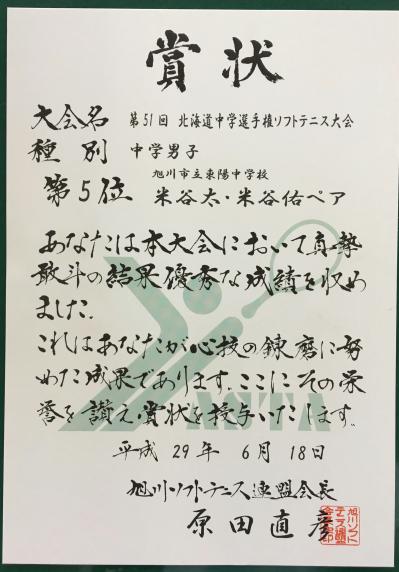 賞状
大会名 第51回 北海道中学選手権ソフトテニス大会
種別 中学男子
旭川市立東陽中学校
第5位 米谷太・米谷佑ペア
あなたは本大会において真摯
敢斗の結果優秀な成績を収め
ました.
これはあなたが心技の錬磨に努
めた成果であります.ここにその栄
誉を讃え賞状を授与いたします。
平成 29年 6月 18日
旭川ソフトテニス連盟会長
原田直彦
旭川ソフト
テニス連盟
会長印
ASTA